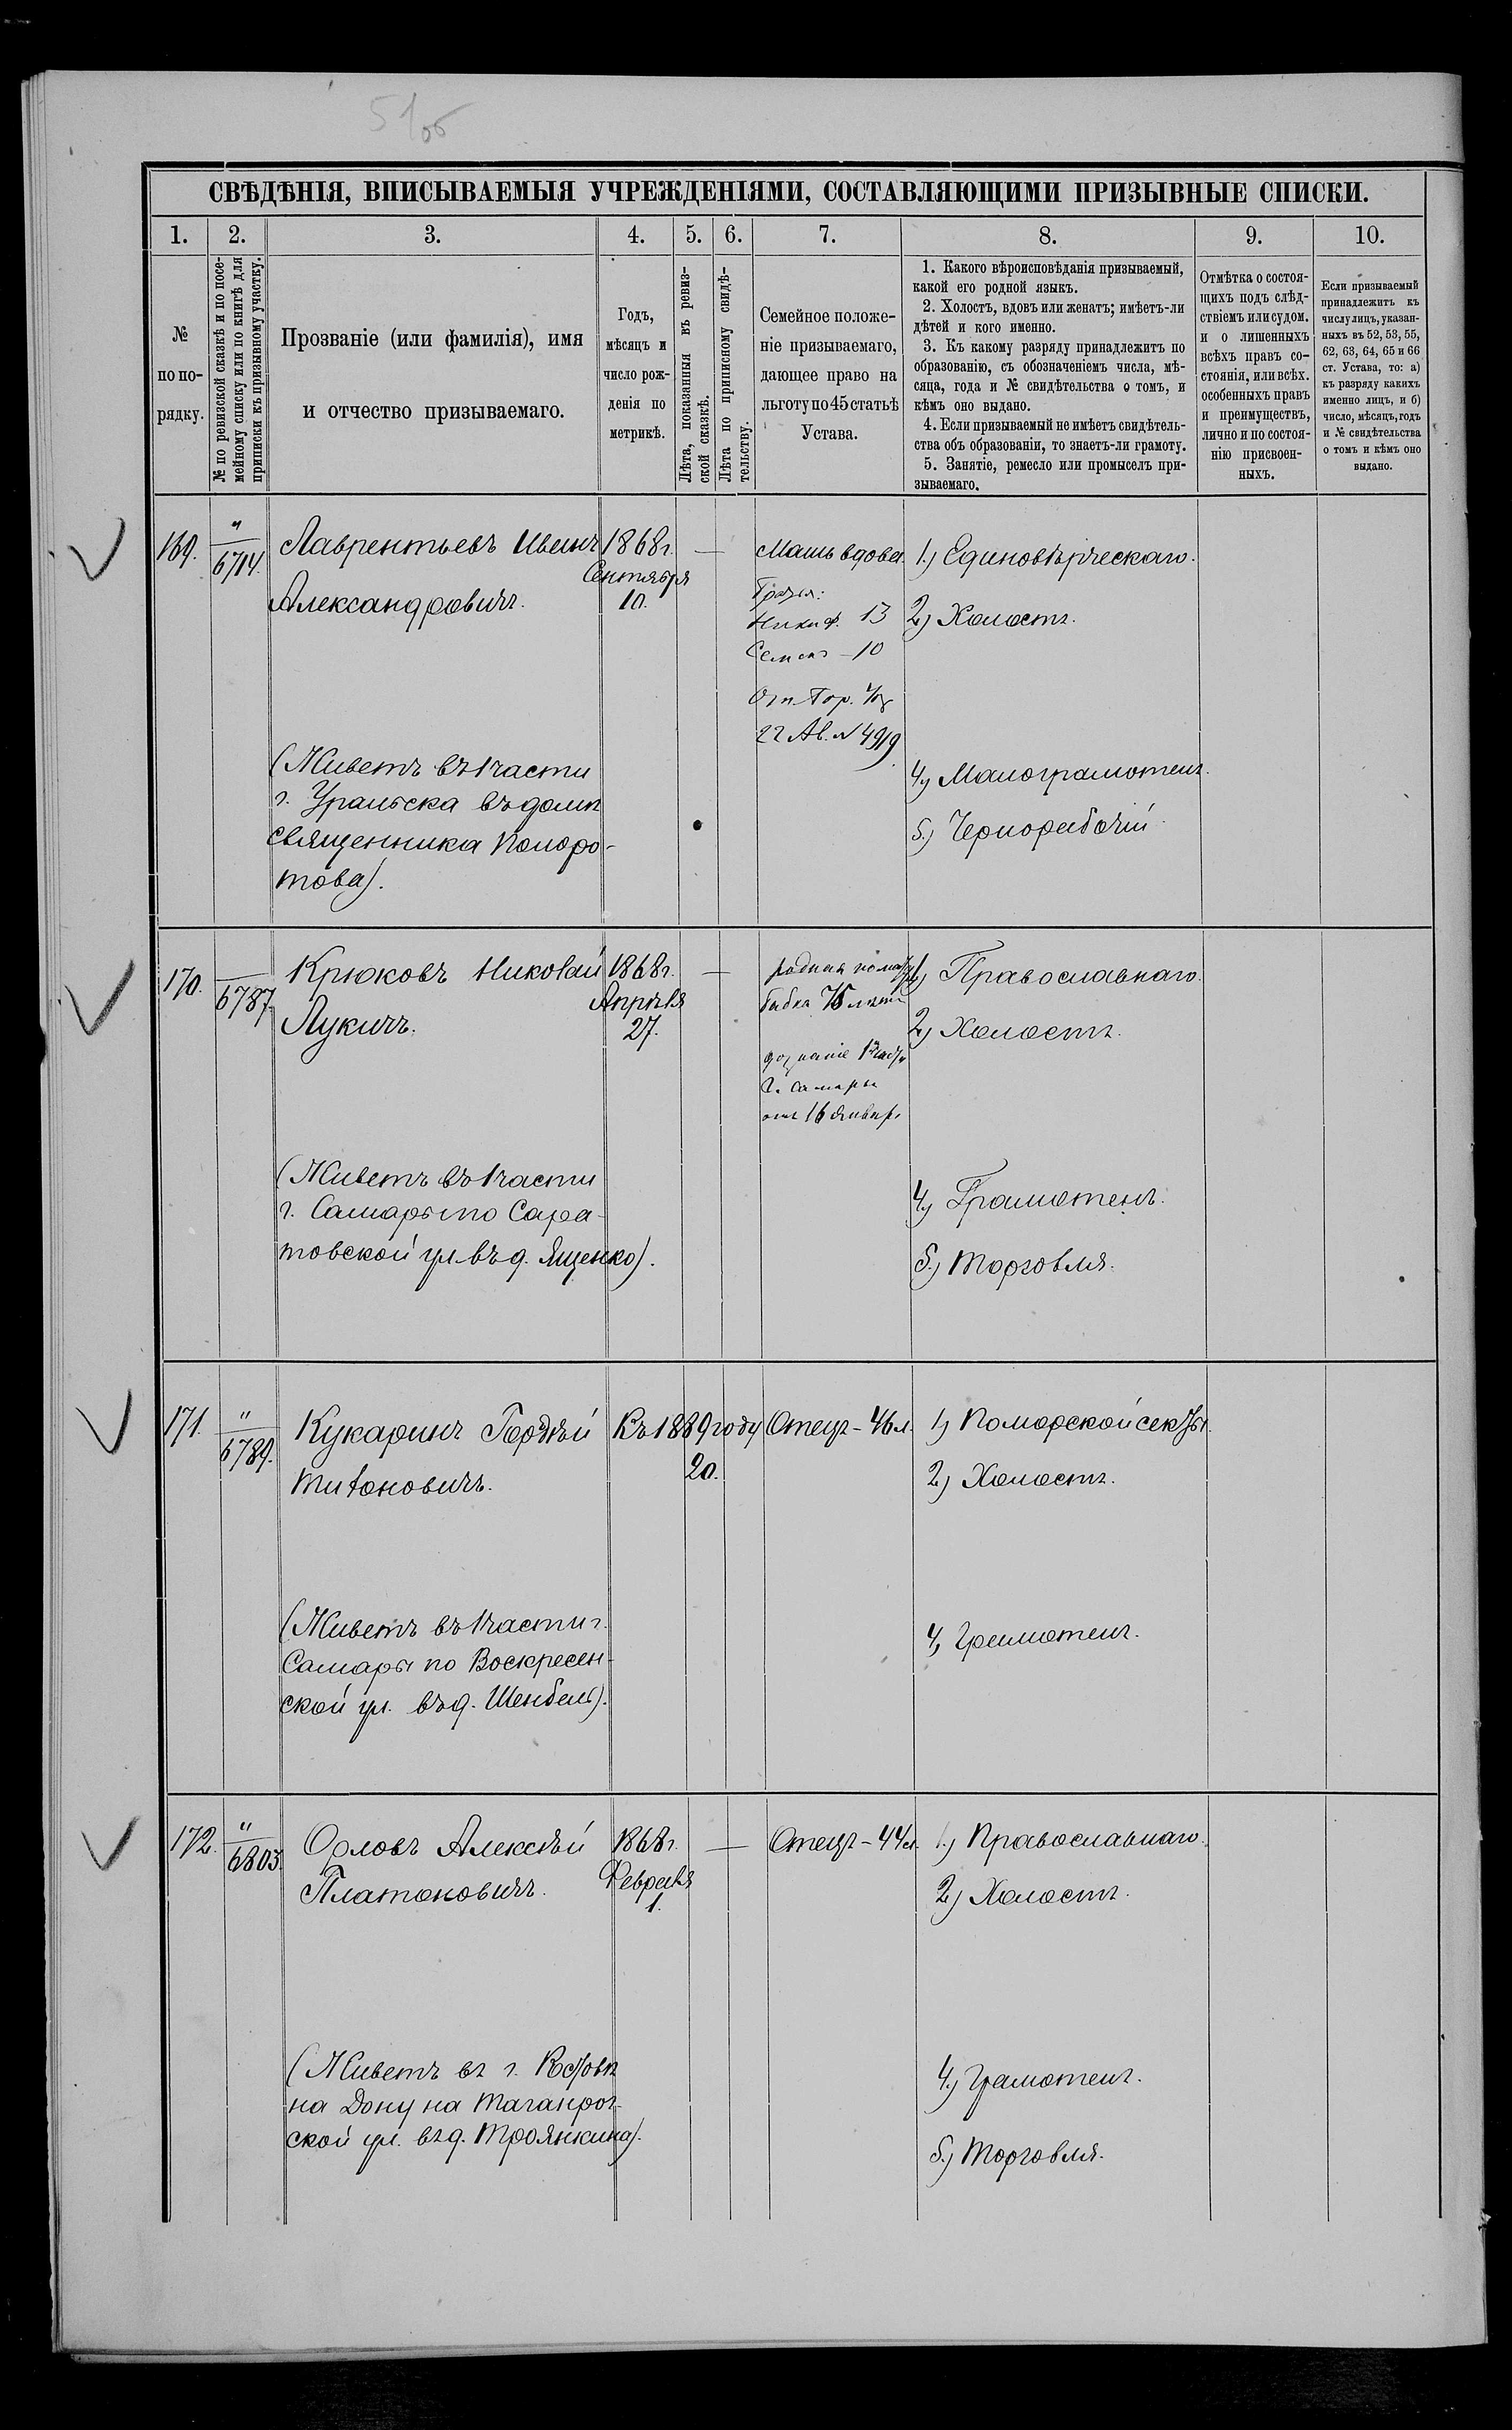 51об
СВѢДѢНІЯ, ВПИСЫВАЕМЫЯ УЧРЕЖДЕНІЯМИ, СОСТАВЛЯЮЩИМИ ПРИЗЫВНЫЕ СПИСКИ.
1. 2. 3. 4. 5. 6. 7. 8. 9. 10.
№
по по-
рядку.
№ по ревизской сказкѣ и по посе-
мейному списку или по книгѣ для
приписки къ призывному участку.
Прозваніе (или фамилія), имя
и отчество призываемаго.
Годъ,
мѣсяцъ и
число рож-
денія по
метрикѣ.
Лѣта, показанныя въ ревиз-
ской сказкѣ.
Лѣта по приписному свидѣ-
тельству.
Семейное положе-
ніе призываемаго,
дающее право на
льготу по 45 статьѣ
Устава.
1. Какого вѣроисповѣданія призываемый,
какой его родной языкъ.
2. Холостъ, вдовъ или женатъ; имѣетъ-ли
дѣтей и кого именно.
3. Къ какому разряду принадлежитъ по
образованію, съ обозначеніемъ числа, мѣ-
сяца, года и № свидѣтельства о томъ, и
кѣмъ оно выдано.
4. Если призываемый не имѣетъ свидѣтель-
ства объ образованіи, то знаетъ-ли грамоту.
5. Занятіе, ремесло или промыселъ при-
зываемаго.
Отмѣтка о состоя-
щихъ подъ слѣд-
ствіемъ или судом.
и о лишенныхъ
всѣхъ правъ со-
стоянія, или всѣх.
особенныхъ правъ
и преимуществъ,
лично и по состоя-
нію присвоен-
ныхъ.
Если призываемый
принадлежитъ къ
числу лицъ, указан-
ныхъ въ 52, 53, 55,
62, 63, 64, 65 и 66
ст. Устава, то: а)
къ разряду какихъ
именно лицъ, и б)
число, мѣсяцъ, годъ
и № свидѣтельства
о томъ и кѣмъ оно
выдано.
169.
"
6714.
Лаврентьевъ Иванъ
Александровичъ.
(Живетъ въ 1 части
г. Уральска въ домѣ
священника Поморо-
това).
1868 г.
Сентября
10.
—
Мать вдова.
Братья:
Никиф. 13
Семенъ – 10
22 Ав. № 4919
1.) Единовѣрческаго.
2.) Холостъ.
4.) Малограмотенъ.
5.) Чернорабочій.
170.
6787.
Крюковъ Николай
Лукичъ.
(Живетъ въ 1 части
г. Самары по Сара-
товской ул. въ д. Ященко).
1868 г.
Апрѣля
27.
—
родная
бабка 75 лѣтъ
дознаніе 1й части
г. Самары
отъ 16 Январ.
1.) Православнаго.
2.) Холостъ.
4.) Грамотенъ.
5.) Торговля.
171.
"
6789.
Кукаринъ Гордѣй
Титоновичъ.
(Живетъ въ 1 части г.
Самары по Воскресен-
ской ул. въ д. Шенбель).
Къ 1889 году
20.
Отецъ – 46 л.
1.) Поморской секты.
2.) Холостъ.
4.) Грамотенъ.
172.
"
6803.
Орловъ Алексѣй
Платоновичъ.
(Живетъ въ г. Ростовѣ
на Дону на Таганрог-
ской ул. въ д. Троянкина).
1868 г.
Февраля
1.
—
Отецъ – 44 л.
1.) Православнаго.
2.) Холостъ.
4.) Грамотенъ.
5.) Торговля.